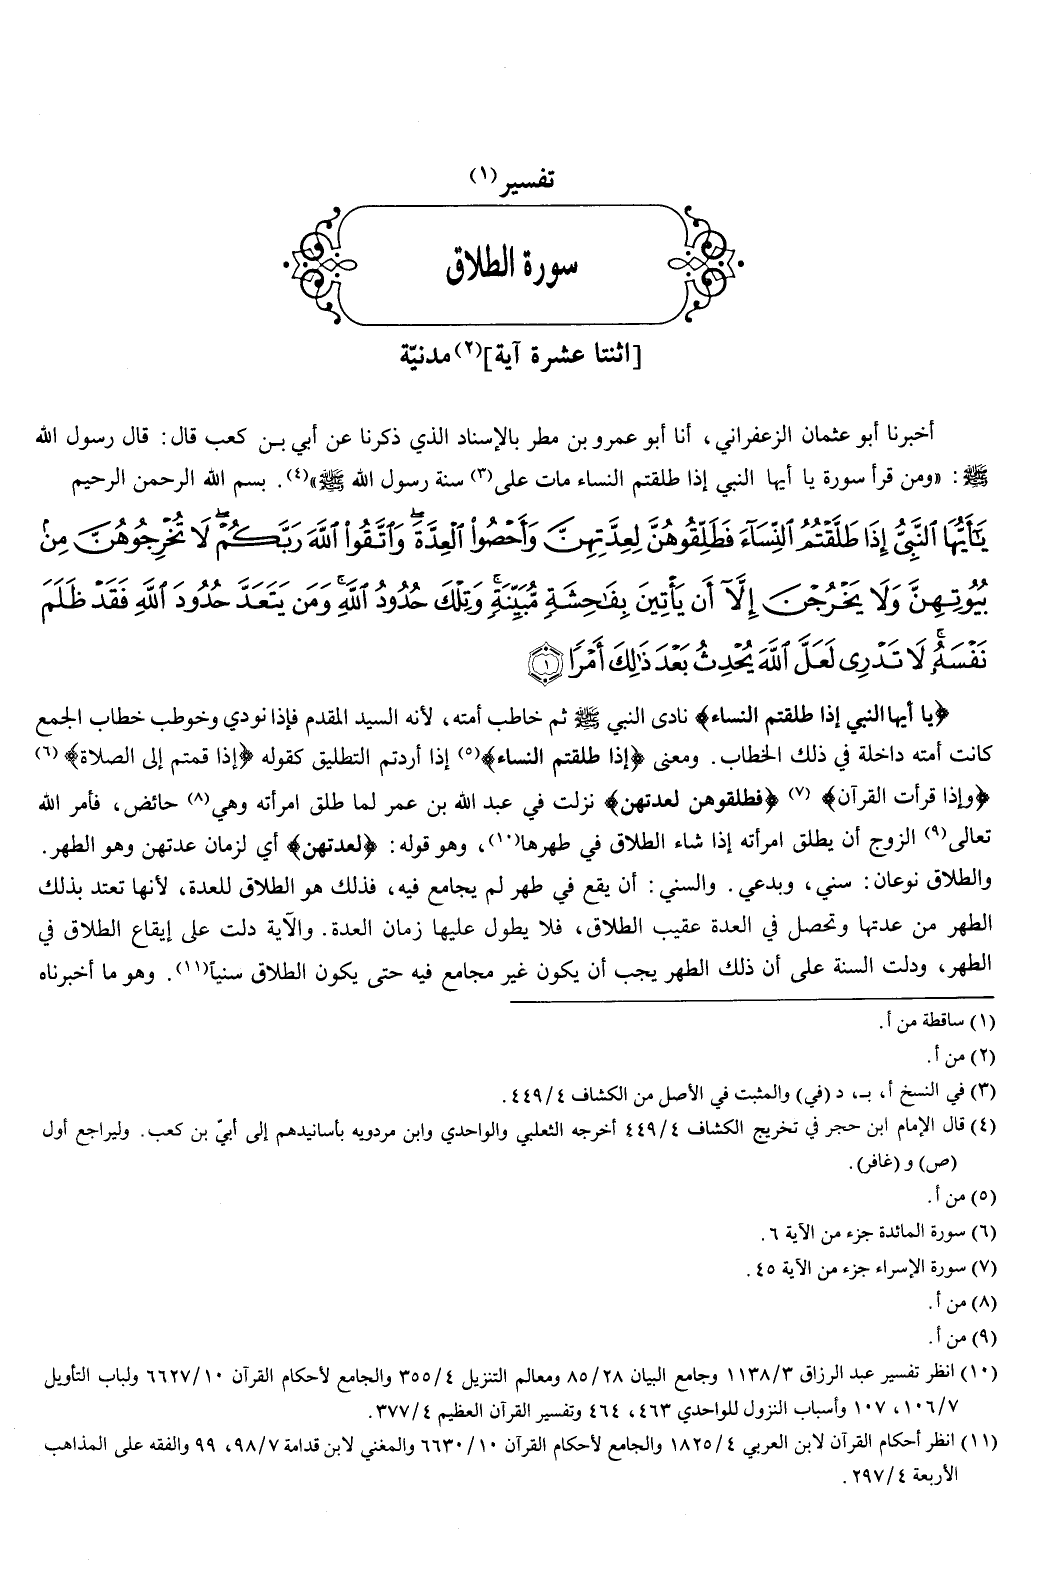 تفسير(١)
سورة الطلاق
[اثنتا عشرة آية](٢) مدنيّة
أخبرنا أبو عثمان الزعفراني، أنا أبو عمرو بن مطر بالإسناد الذي ذكرنا عن أبي بـن كعب قال: قال رسول الله
ﷺ: «ومن قرأ سورة يا أيها النبي إذا طلقتم النساء مات على(٣) سنة رسول الله ﷺ»(٤). بسم الله الرحمن الرحيم
يَٰٓأَيُّهَا ٱلنَّبِيُّ إِذَا طَلَّقْتُمُ ٱلنِّسَآءَ فَطَلِّقُوهُنَّ لِعِدَّتِهِنَّ وَأَحْصُوا۟ ٱلْعِدَّةَ ۖ وَٱتَّقُوا۟ ٱللَّهَ رَبَّكُمْ ۖ لَا تُخْرِجُوهُنَّ مِنۢ
بُيُوتِهِنَّ وَلَا يَخْرُجْنَ إِلَّآ أَن يَأْتِينَ بِفَٰحِشَةٍ مُّبَيِّنَةٍ ۚ وَتِلْكَ حُدُودُ ٱللَّهِ ۚ وَمَن يَتَعَدَّ حُدُودَ ٱللَّهِ فَقَدْ ظَلَمَ
نَفْسَهُۥ ۚ لَا تَدْرِى لَعَلَّ ٱللَّهَ يُحْدِثُ بَعْدَ ذَٰلِكَ أَمْرًا ١
﴿يا أيها النبي إذا طلقتم النساء﴾ نادى النبي ﷺ ثم خاطب أمته، لأنه السيد المقدم فإذا نودي وخوطب خطاب الجمع
كانت أمته داخلة في ذلك الخطاب. ومعنى ﴿إذا طلقتم النساء﴾(٥) إذا أردتم التطليق كقوله ﴿إذا قمتم إلى الصلاة﴾(٦)
﴿وإذا قرأت القرآن﴾ (٧) ﴿فطلقوهن لعدتهن﴾ نزلت في عبد الله بن عمر لما طلق امرأته وهي(٨) حائض، فأمر الله
تعالى(٩) الزوج أن يطلق امرأته إذا شاء الطلاق في طهرها(١٠)، وهو قوله: ﴿لعدتهن﴾ أي لزمان عدتهن وهو الطهر.
والطلاق نوعان: سني، وبدعي. والسني: أن يقع في طهر لم يجامع فيه، فذلك هو الطلاق للعدة، لأنها تعتد بذلك
الطهر من عدتها وتحصل في العدة عقيب الطلاق، فلا يطول عليها زمان العدة. والآية دلت على إيقاع الطلاق في
الطهر، ودلت السنة على أن ذلك الطهر يجب أن يكون غير مجامع فيه حتى يكون الطلاق سنياً(١١). وهو ما أخبرناه
(١) ساقطة من أ.
(٢) من أ.
(٣) في النسخ أ، بـ، د (في) والمثبت في الأصل من الكشاف ٤/٤٤٩.
(٤) قال الإمام ابن حجر في تخريج الكشاف ٤/٤٤٩ أخرجه الثعلبي والواحدي وابن مردويه بأسانيدهم إلى أبيّ بن كعب. وليراجع أول
(ص) و (غافر).
(٥) من أ.
(٦) سورة المائدة جزء من الآية ٦.
(٧) سورة الإسراء جزء من الآية ٤٥.
(٨) من أ.
(٩) من أ.
(١٠) انظر تفسير عبد الرزاق ٣/١١٣٨ وجامع البيان ٢٨/٨٥ ومعالم التنزيل ٤/٣٥٥ والجامع لأحكام القرآن ١٠/٦٦٢٧ ولباب التأويل
٧/١٠٦، ١٠٧ وأسباب النزول للواحدي ٤٦٣، ٤٦٤ وتفسير القرآن العظيم ٤/٣٧٧.
(١١) انظر أحكام القرآن لابن العربي ٤/١٨٢٥ والجامع لأحكام القرآن ١٠/٦٦٣٠ والمغني لابن قدامة ٧/٩٨، ٩٩ والفقه على المذاهب
الأربعة ٤/٢٩٧.